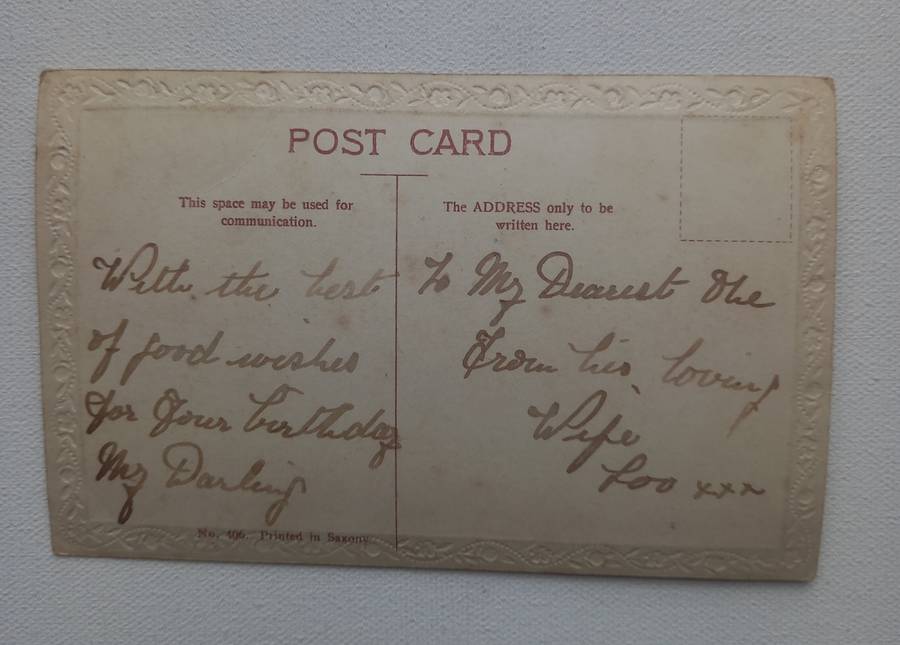 POST CARD
This space may be used for
communication.
The ADDRESS only to be
written here.
With the best
of good wishes
for Your birthday
My Darling
To My Dearest
From his loving
Wife
Loo xxx
No. 406. Printed in Saxony